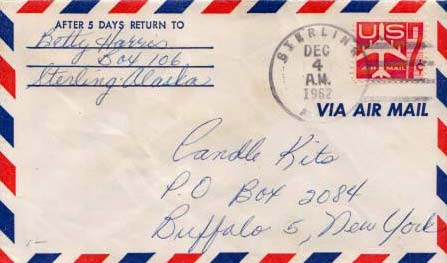 AFTER 5 DAYS RETURN TO
Betty Harris
Box 106
Sterling Alaska
STERLING
DEC
4
A.M.
1962
U.S.
AIR MAIL
VIA AIR MAIL
Candle Kits
P.O Box 2084
Buffalo 5, New York